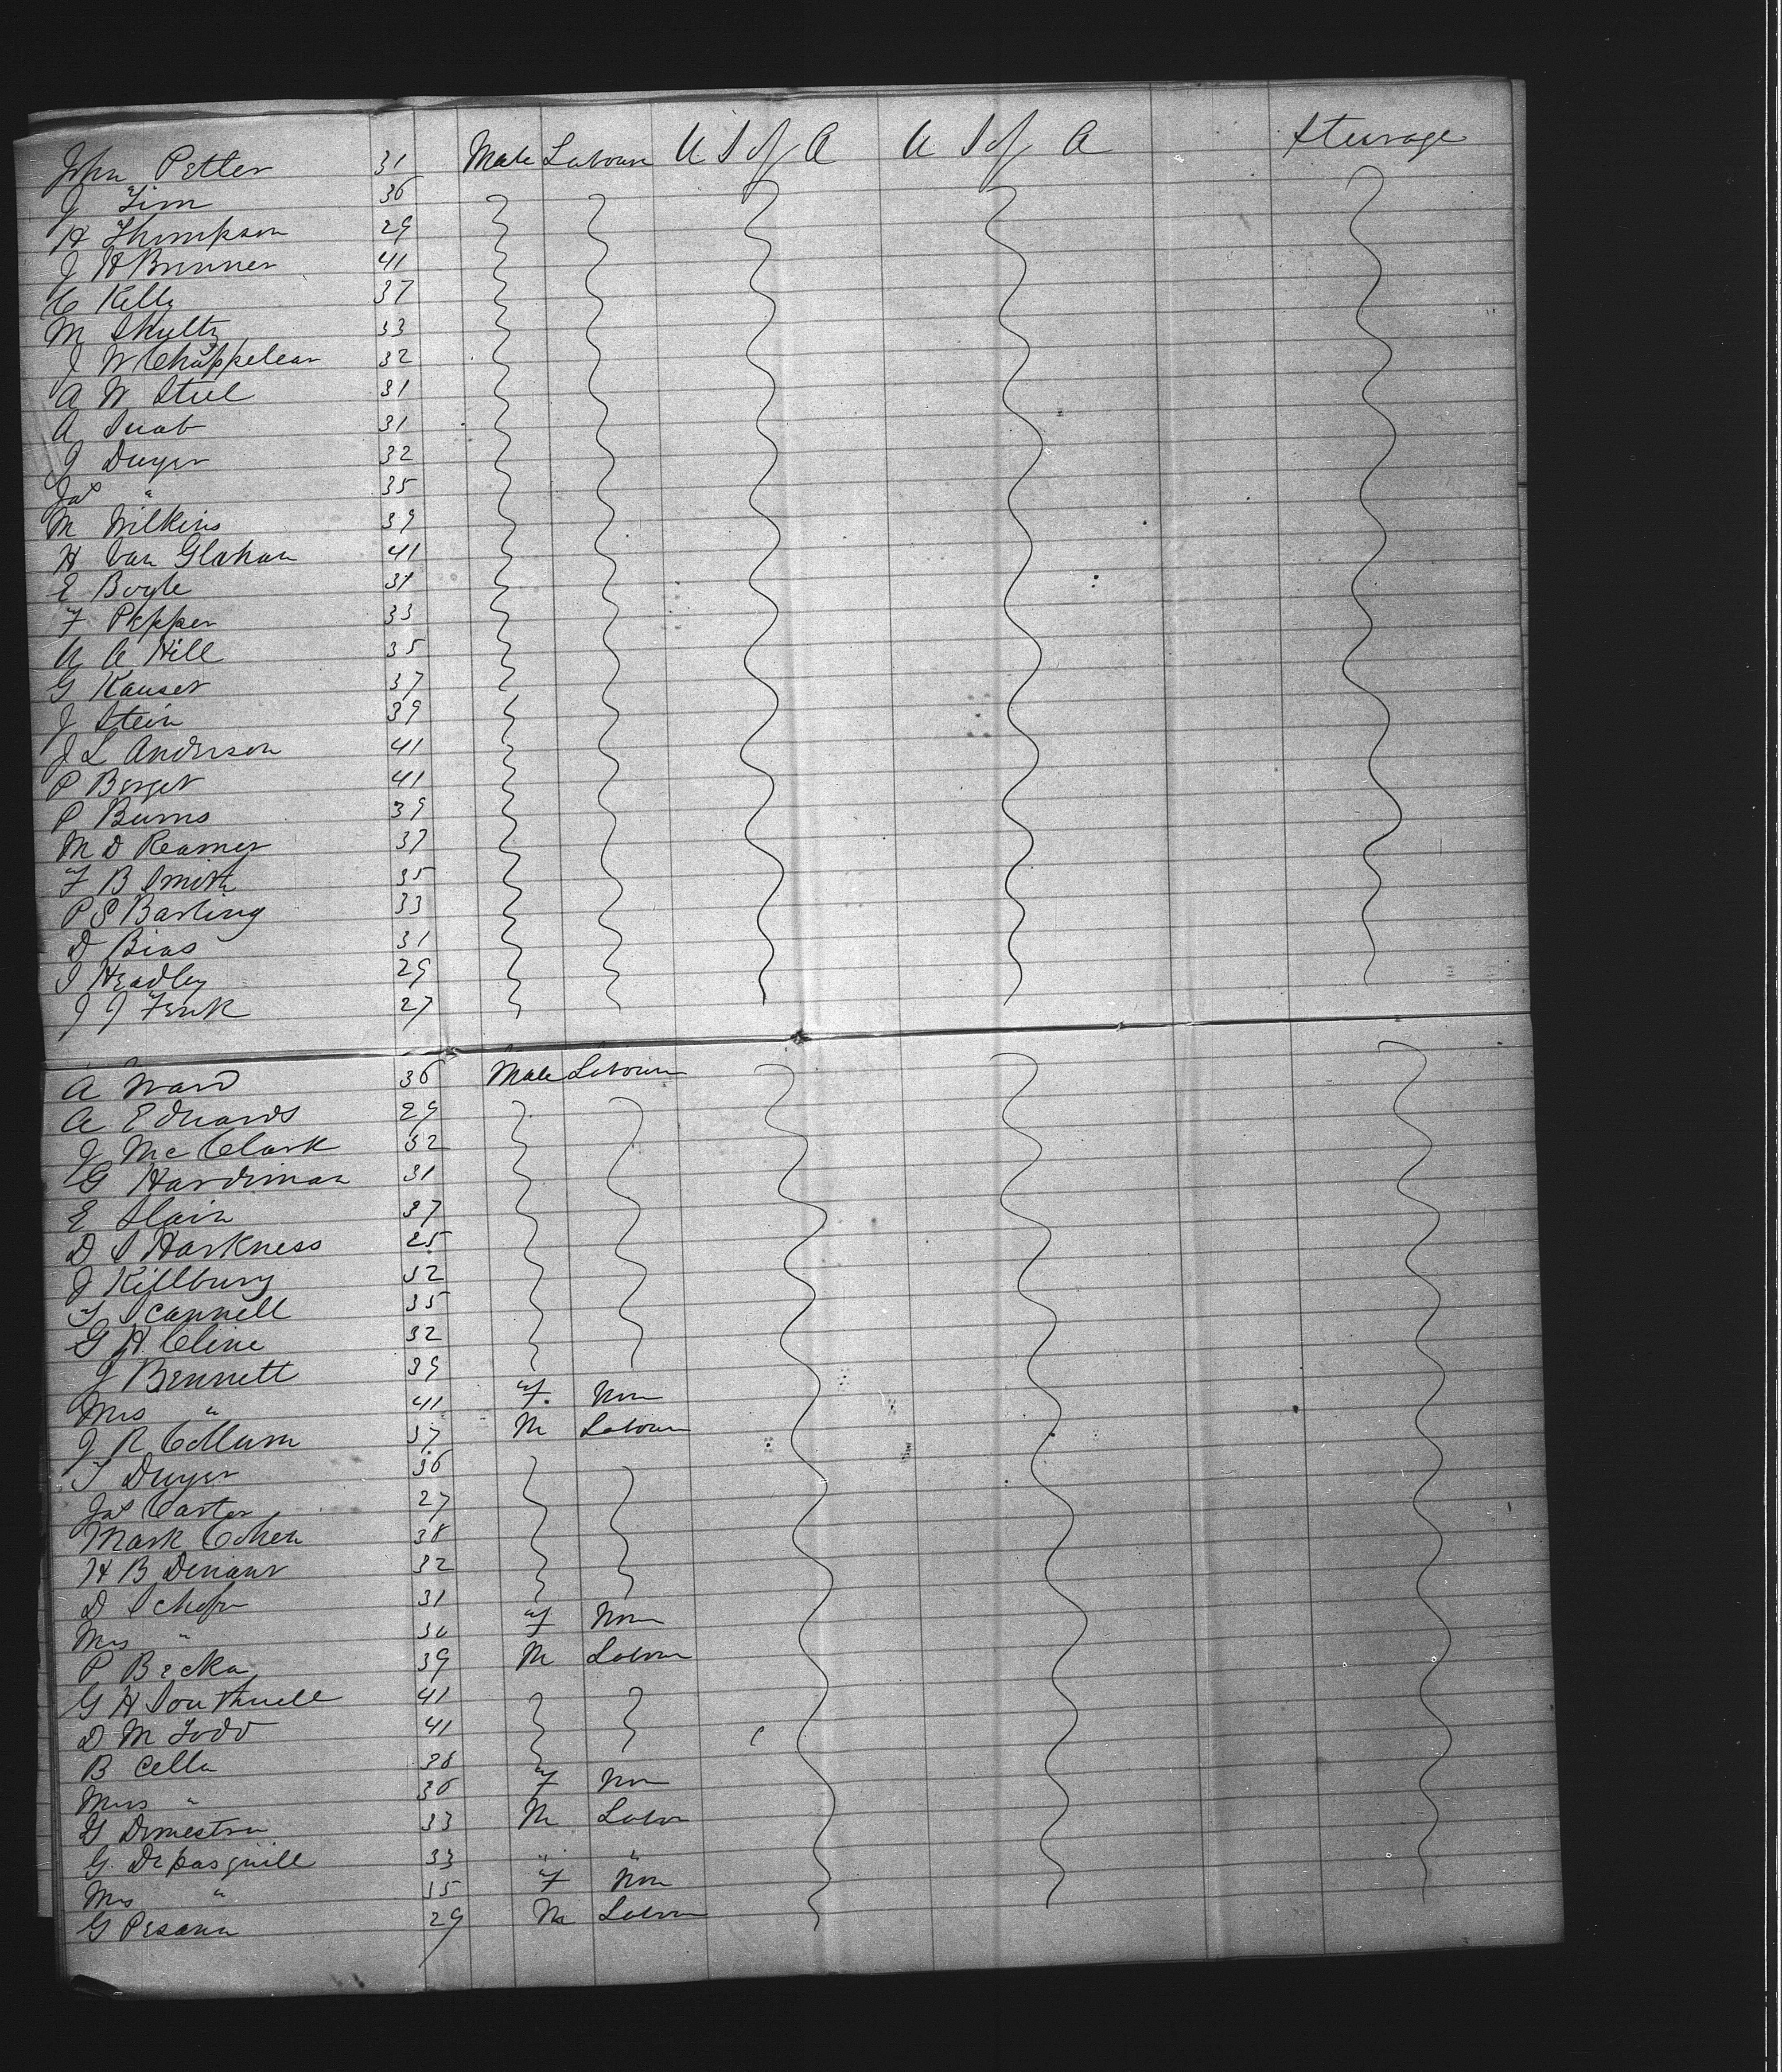 John Petter 31 Male Labourer U S of A U S of A Steerage
J Tim 36
H Thompson 29
J H Brunner 41
C Kelly 37
M Shultz 33
J W Chappelear 32
A W Steel 31
A 31
J Dwyer 32
Jas " 35
M Wilkins 39
H Van Glahan 41
E Boyle 37
F Pepper 33
A A Hill 35
G Kauser 37
J Stein 39
J L Anderson 41
P Berger 41
P Burns 39
M D Reamer 37
F B Smith 35
P S Barling 33
D Bias 31
J Headley 29
J J Fenk 27
A Ward 36 Male Labourer
A Edwards 29
J McClark 32
G Hardiman 31
E Slain 37
D S Harkness 25
J Killbury 32
T Scannell 35
G H Cline 32
J Bennett 39
Mrs " 41 F. Non
J R Collum 37 M Labour
T Dwyer 36
Jas Carter 27
Mark Cohen 38
H B 32
D 31
Mrs " 30 F Non
P Becka 39 M Labour
G H Southwell 41
D M Todd 41
B Cella 38
Mrs " 36 F Non
G Demestra 33 M Labor
G. Depasquill 33 " "
Mrs " 35 F Non
G Pesana 29 M Labour